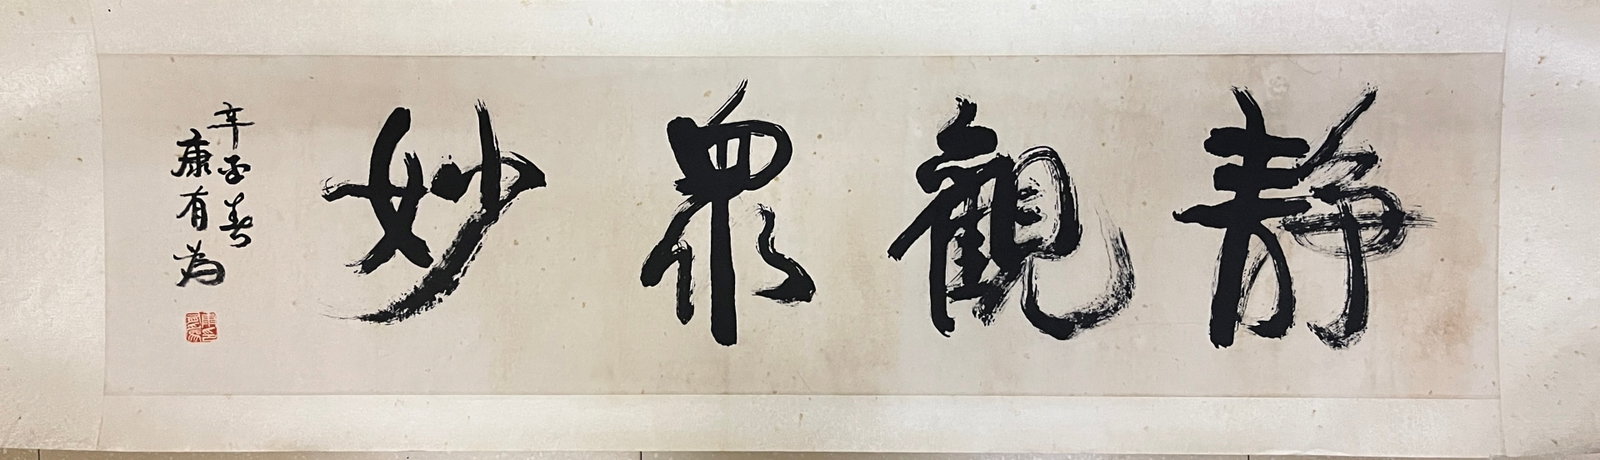 靜觀眾妙
辛酉春
康有為